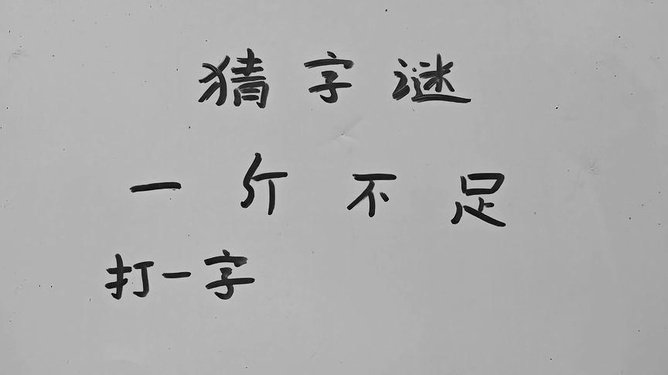 猜字谜
一斤不足
打一字